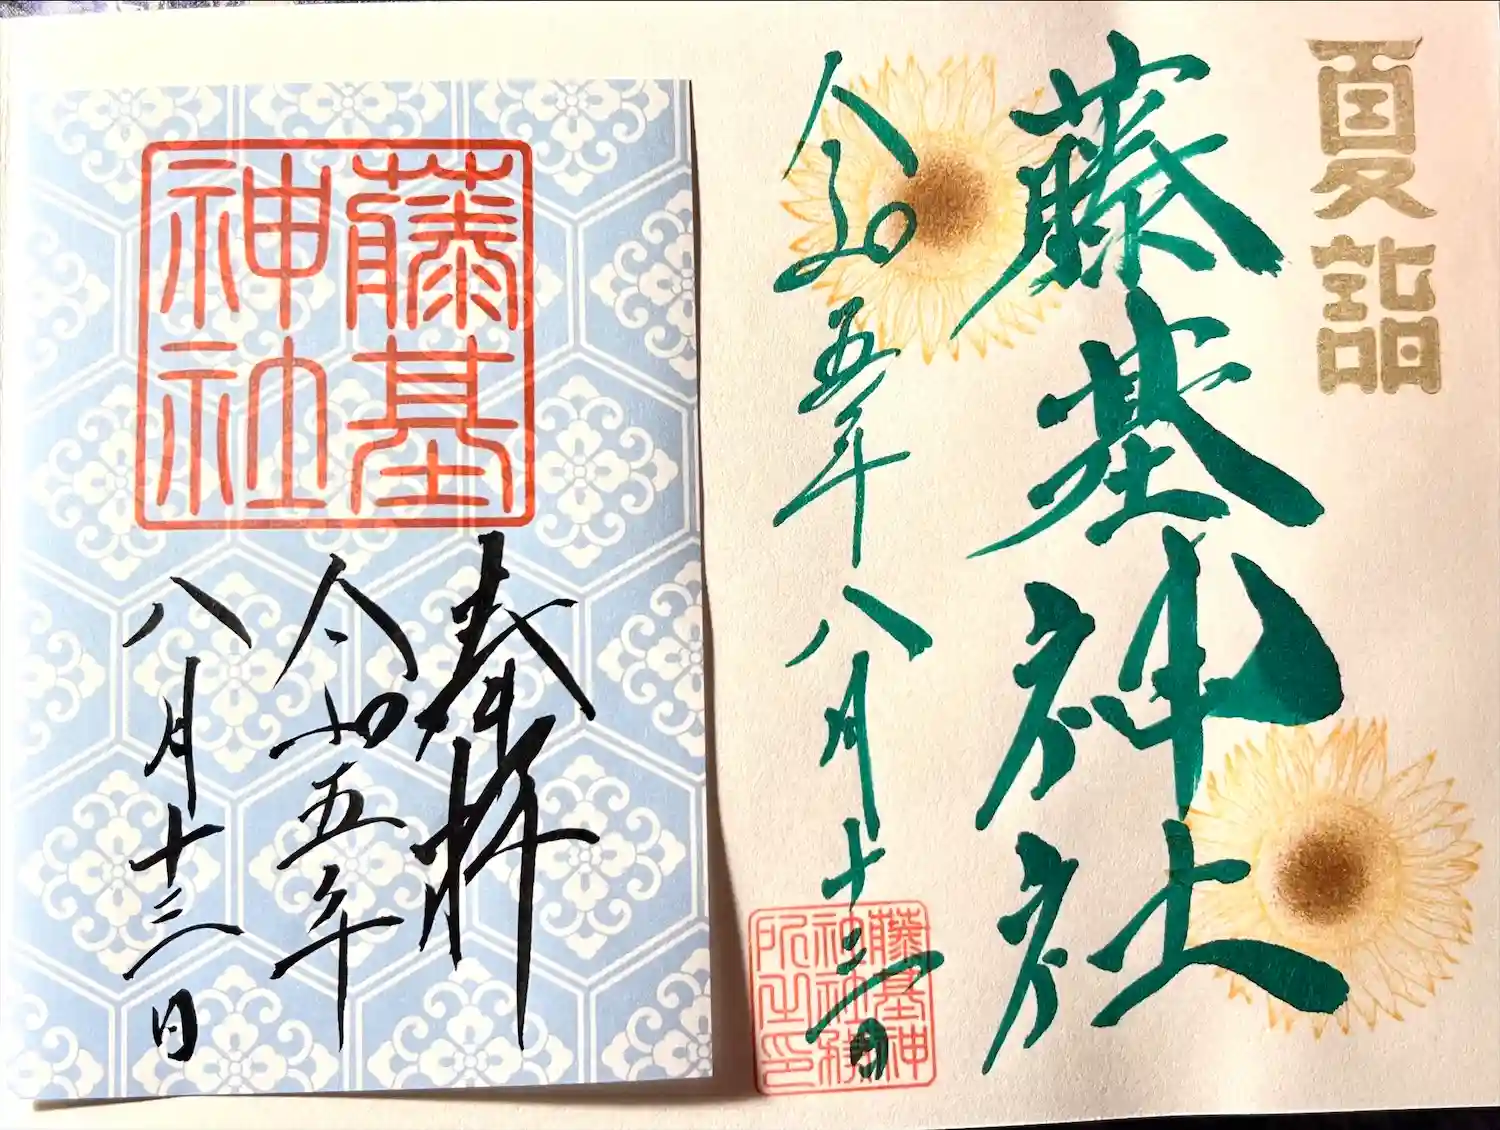 夏詣
藤基神社
令和五年八月十三日
藤基神
社社務
所之印
藤基
神社
奉拝
令和五年
八月十三日